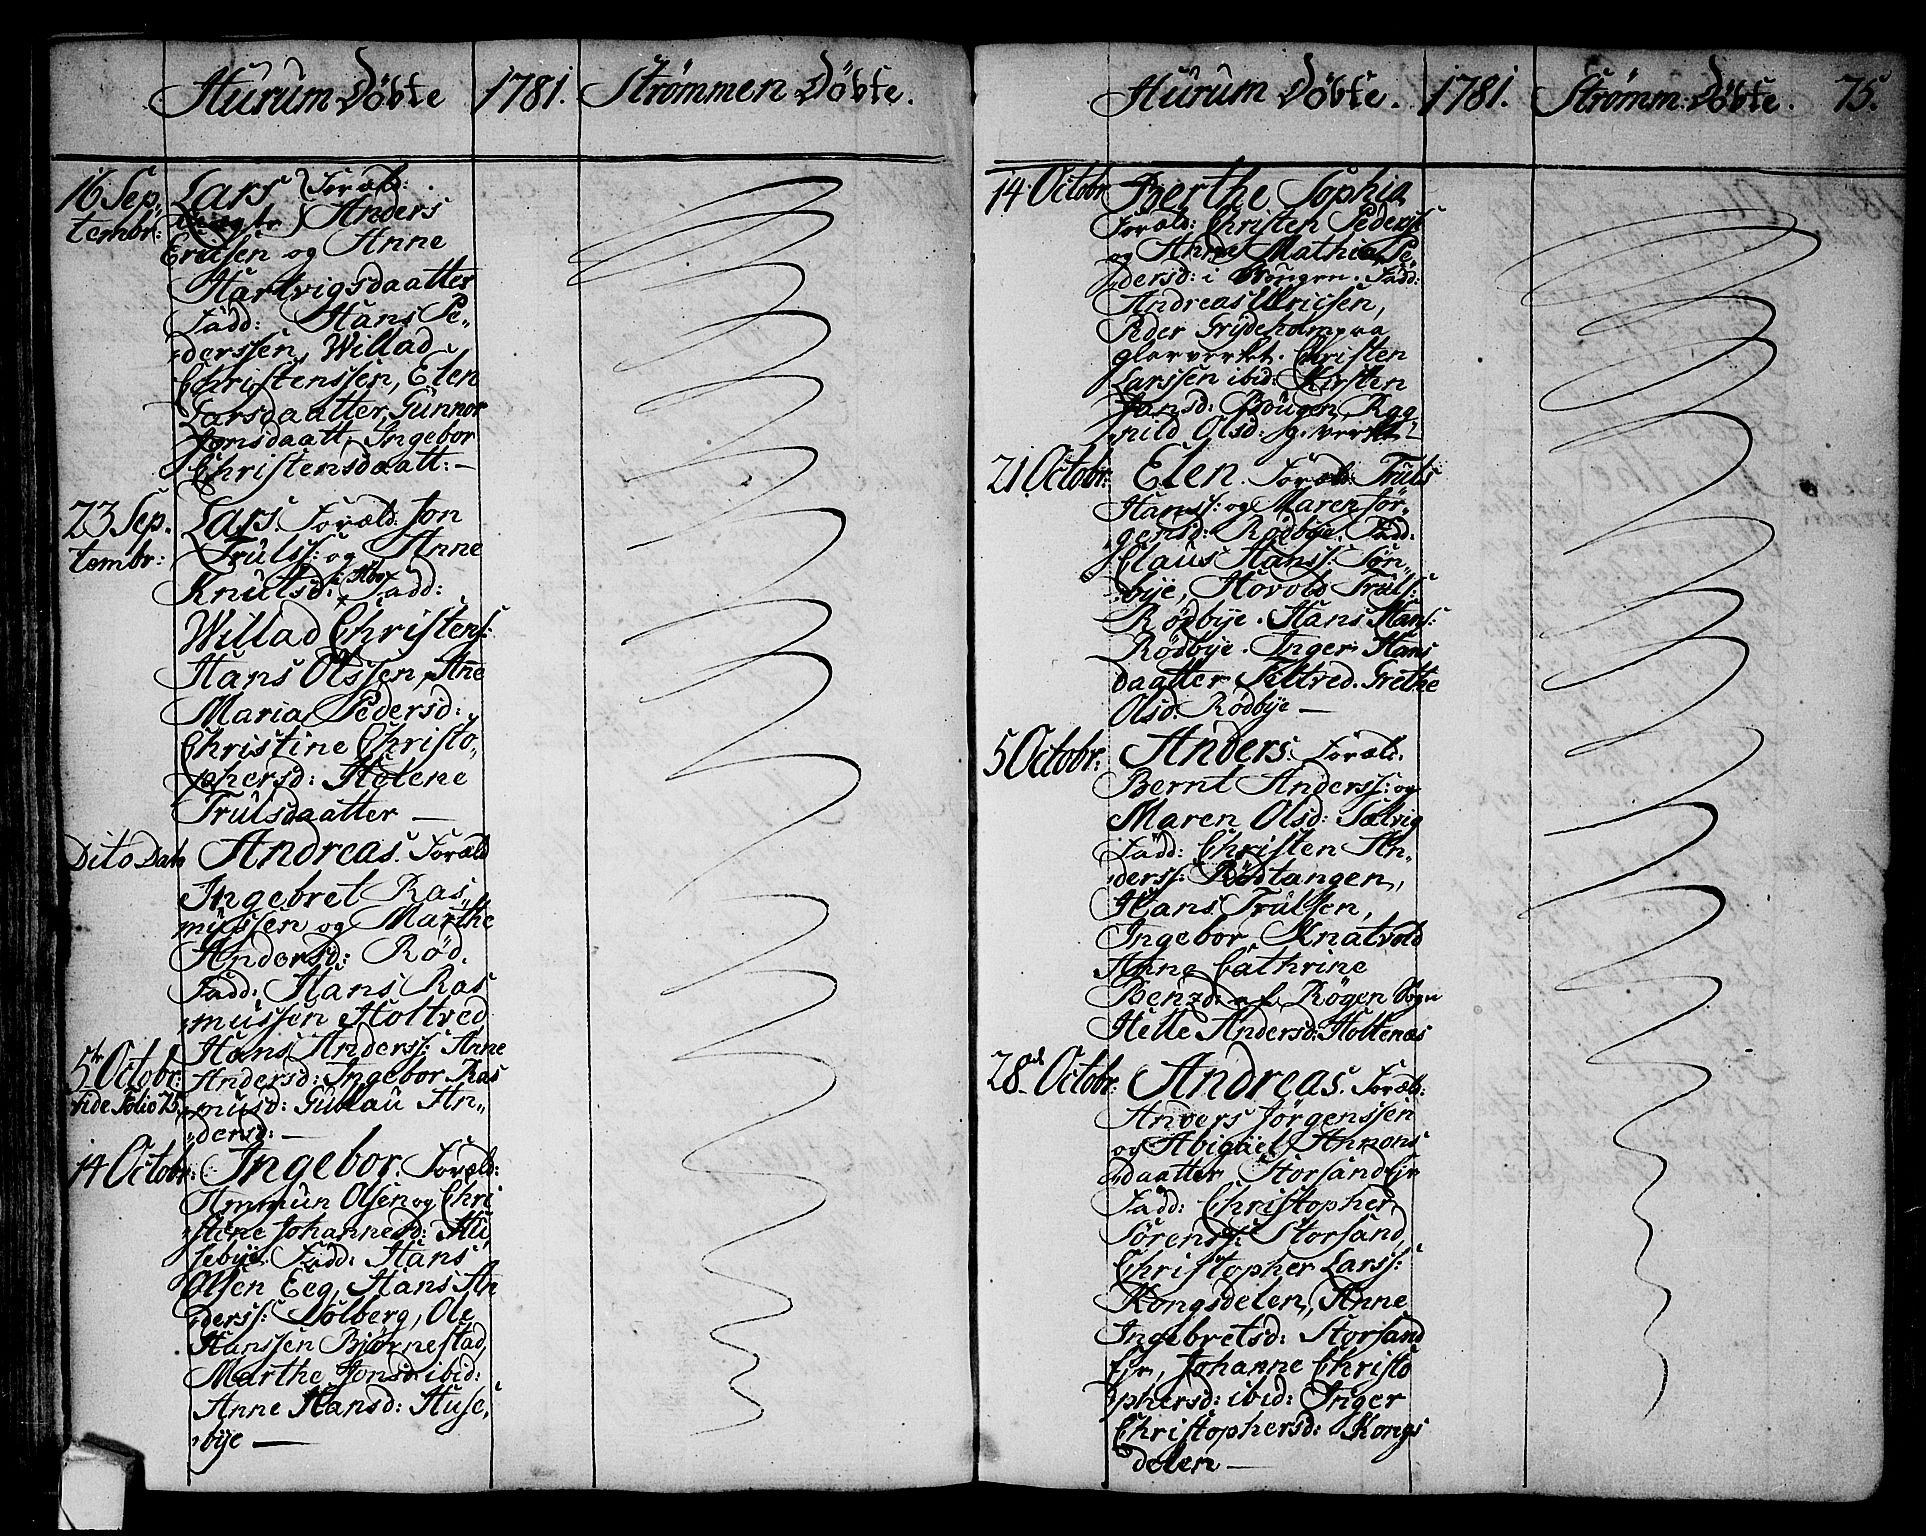 Hurum Döbte 1781. Strømmen Döbte.
16 Sep,
tembr:
Lars Foræld:
Anders
Ericsen og Anne
Hartvigsdaatter
Fadd: Hans Pe,,
derssen, Willad
Christenssen, Elen
Larsdaatter, Gunnor
Jonsdaatt, Ingebor
Christensdaatt: —
23 Sep.
tembr:
Lars. Foræld: Jon
Trulss: og Anne
Knutsd: Fadd:
Willad Christens:
Hans Olssen, Ane
Maria Pedersd:
Christine Christo,,
phersd: Helene
Trulsdaatter —
Dito Dato Andreas. Foræld
Ingebret Ras,,
mussen og Marthe
Andersd: Rød.
Fadd: Hans Ras
mussen Holtved
Hans Anderss: Anne
5te Octobr:
vide Folio 75.
Andersd: Ingebor Ras
musd: Gublau An,,
dersd: —
14 Octobr: Ingebor. Foræld:
Ammun Olsen og Chri
stine Johannesd: Hu
sebye. Fadd: Hans
Olsen Eeg, Hans An
derss: Solberg, Ole
Hanssen Bjørnestad,
Marthe Jonsd: ibid:
Anne Hansd: Huse,
bye —
Hurum Döbte. 1781. Strømm: Döbte. 75.
14. Octobr Berthe Sophia
Foræld: Christen Pederss:
og Anne Mathia Pe,
dersd: i Fadd:
Andreas Ulricsen,
Peder Grydeholm paa
glasverket. Christen
Larssen ibid: Kirsten
Hansd: Rag
nild Olsd: g. verket —
21 Octobr: Elen. Foræld: Truls
Hanss: og Maren Jör,
gensd: Rödbye. Fadd:
Claus Hanss: Tøn,,
bye, Hovold Trulss:
Rödbye. Hans Hans:
Rödbye. Inger Hans
daatter Teltved. Grethe
Olsd. Rödbye —
5 Octobr: Anders. Foræld.
Bernt Anderss: og
Maren Olsd: Sætvig
Fadd: Christen An,,
derss: Rödtangen,
Hans Trulsen,
Ingebor Knatvold
Anne Cathrine
Benzd: af Røgen Sogn
Helle Andersd: Holtenæs
28de Octobr: Andreas. Foræld:
Anders Jörgenssen
og Abigael Amons
daatter Storsand Ejr
Fadd: Christopher
Sörenss: Storsand
Christopher Larss:
Kongsdelen, Anne
Ingebretsd: Storsand
Ejr, Johanne Christo
phersd: ibid: Inger
Christophersd: Kongs
delen —